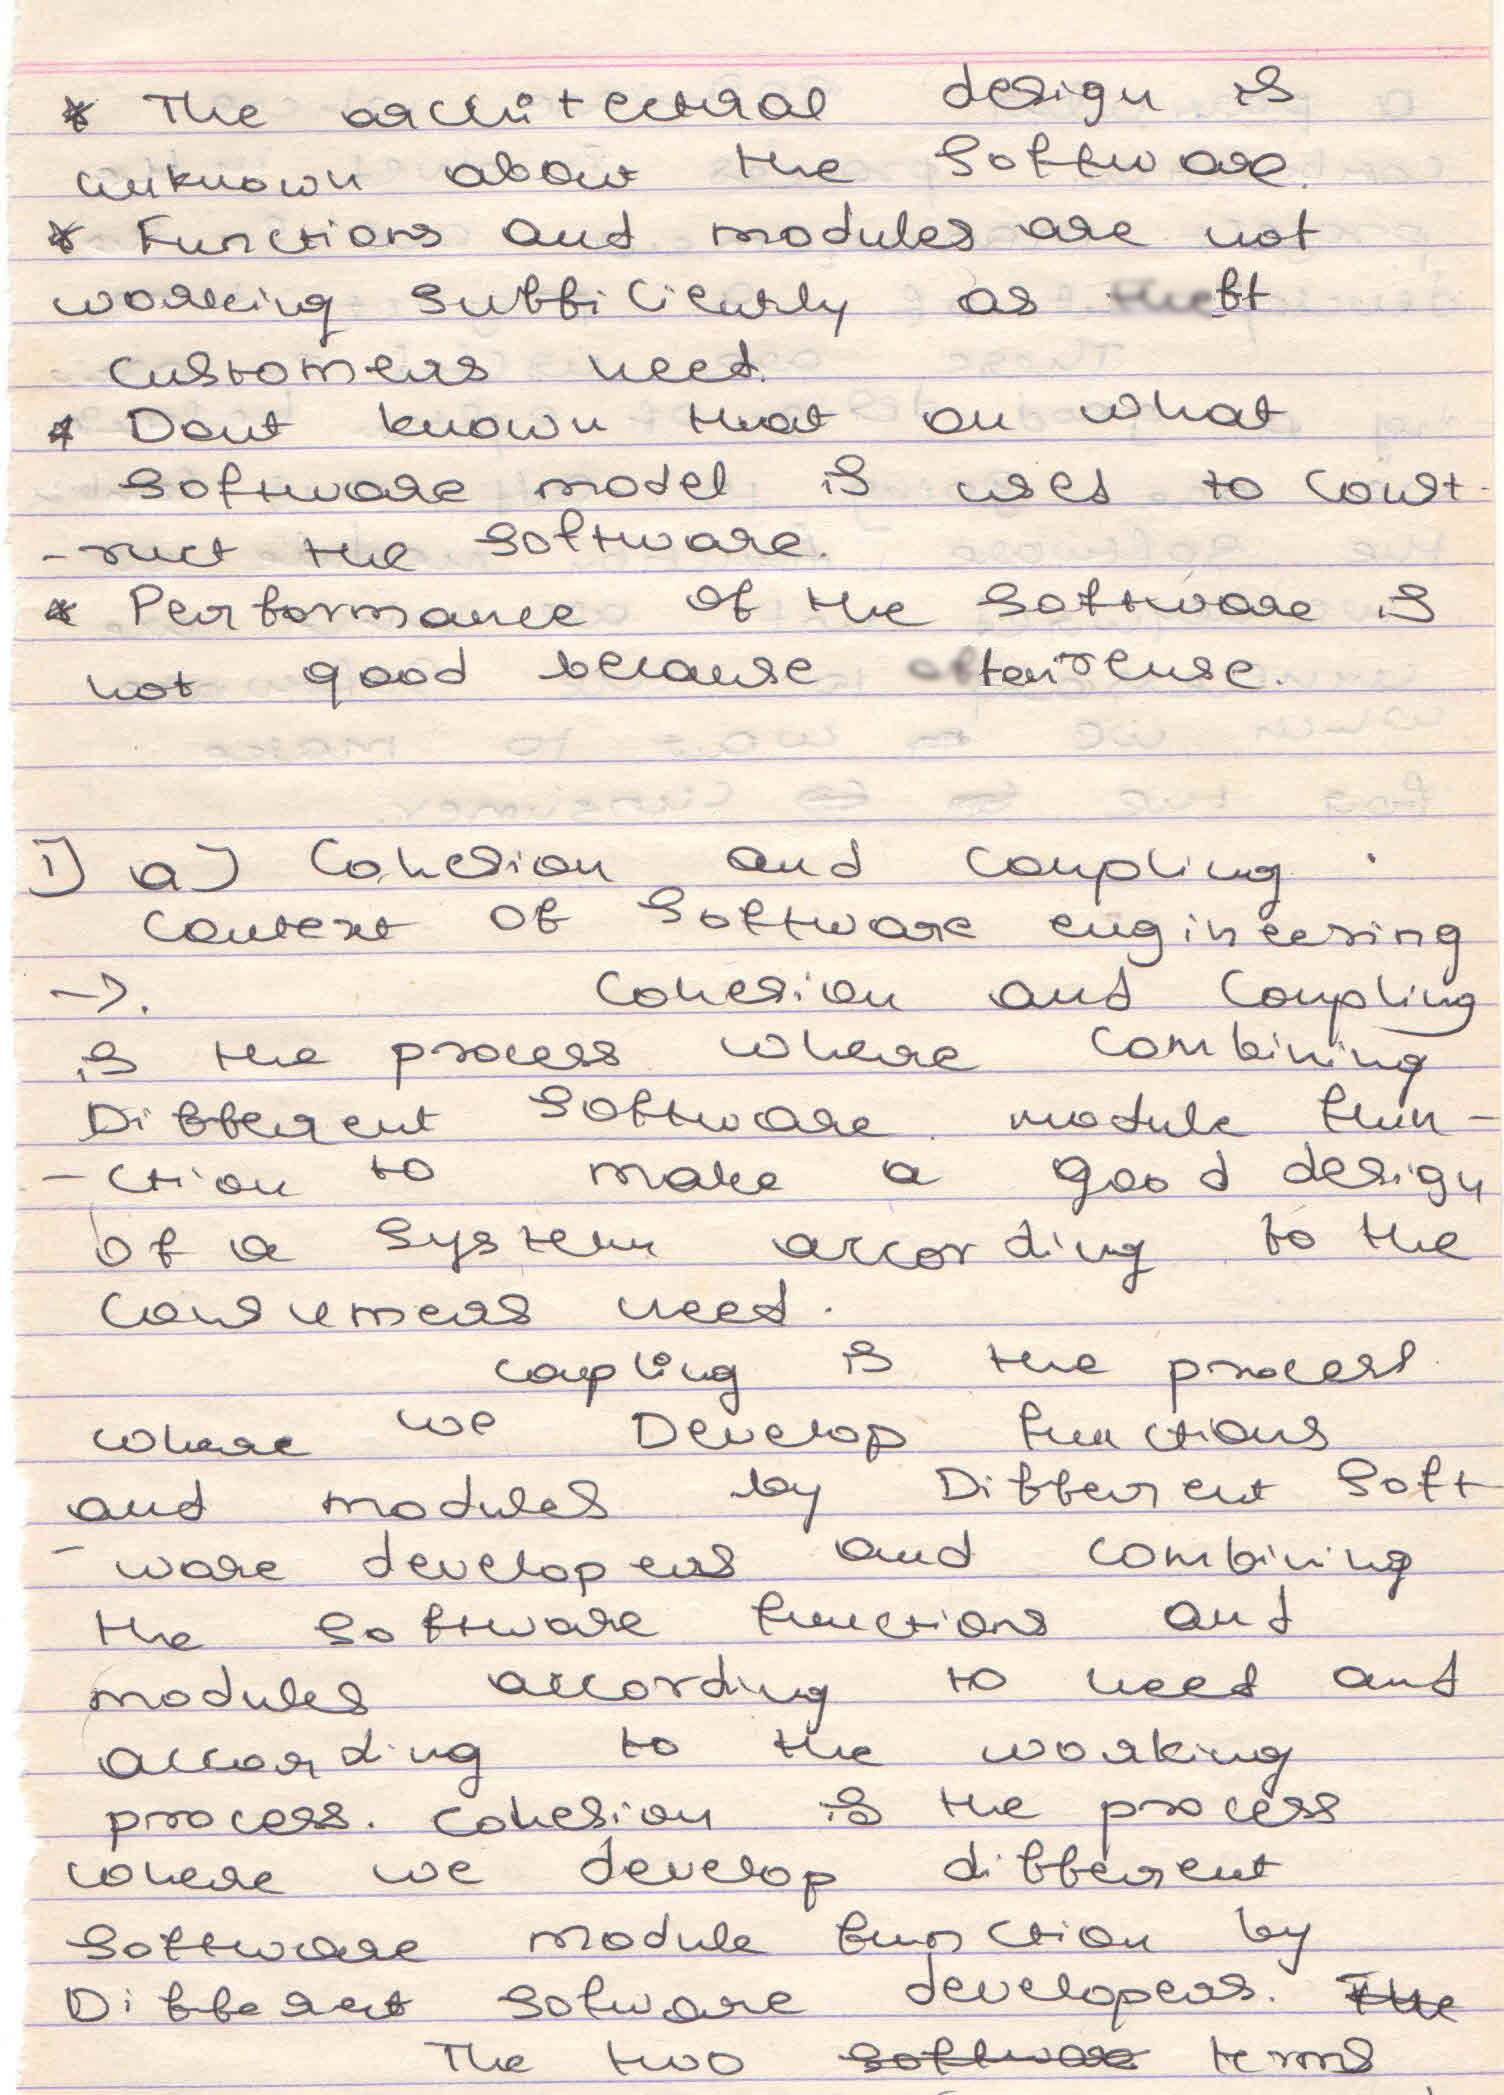 * The architectural design is
unknown about the software.
* Functions and modules are not
working sufficiently as
customers need.
* Dont known that on what
software model is used to const-
-ruct the software.
* Performance of the software is
not good because
1) a) Cohesion and coupling.
context of software engineering
->. Cohesion and Coupling
is the process where combining
Different software module fun-
-ction to make a good design
of a system according to the
consumers need.
coupling is the process
where we Develop functions
and modules by Different soft
-ware developers and combining
the software functions and
modules according to need and
according to the working
process. cohesion is the process
where we develop different
software module function by
Different sofware developers. The
The two software terms